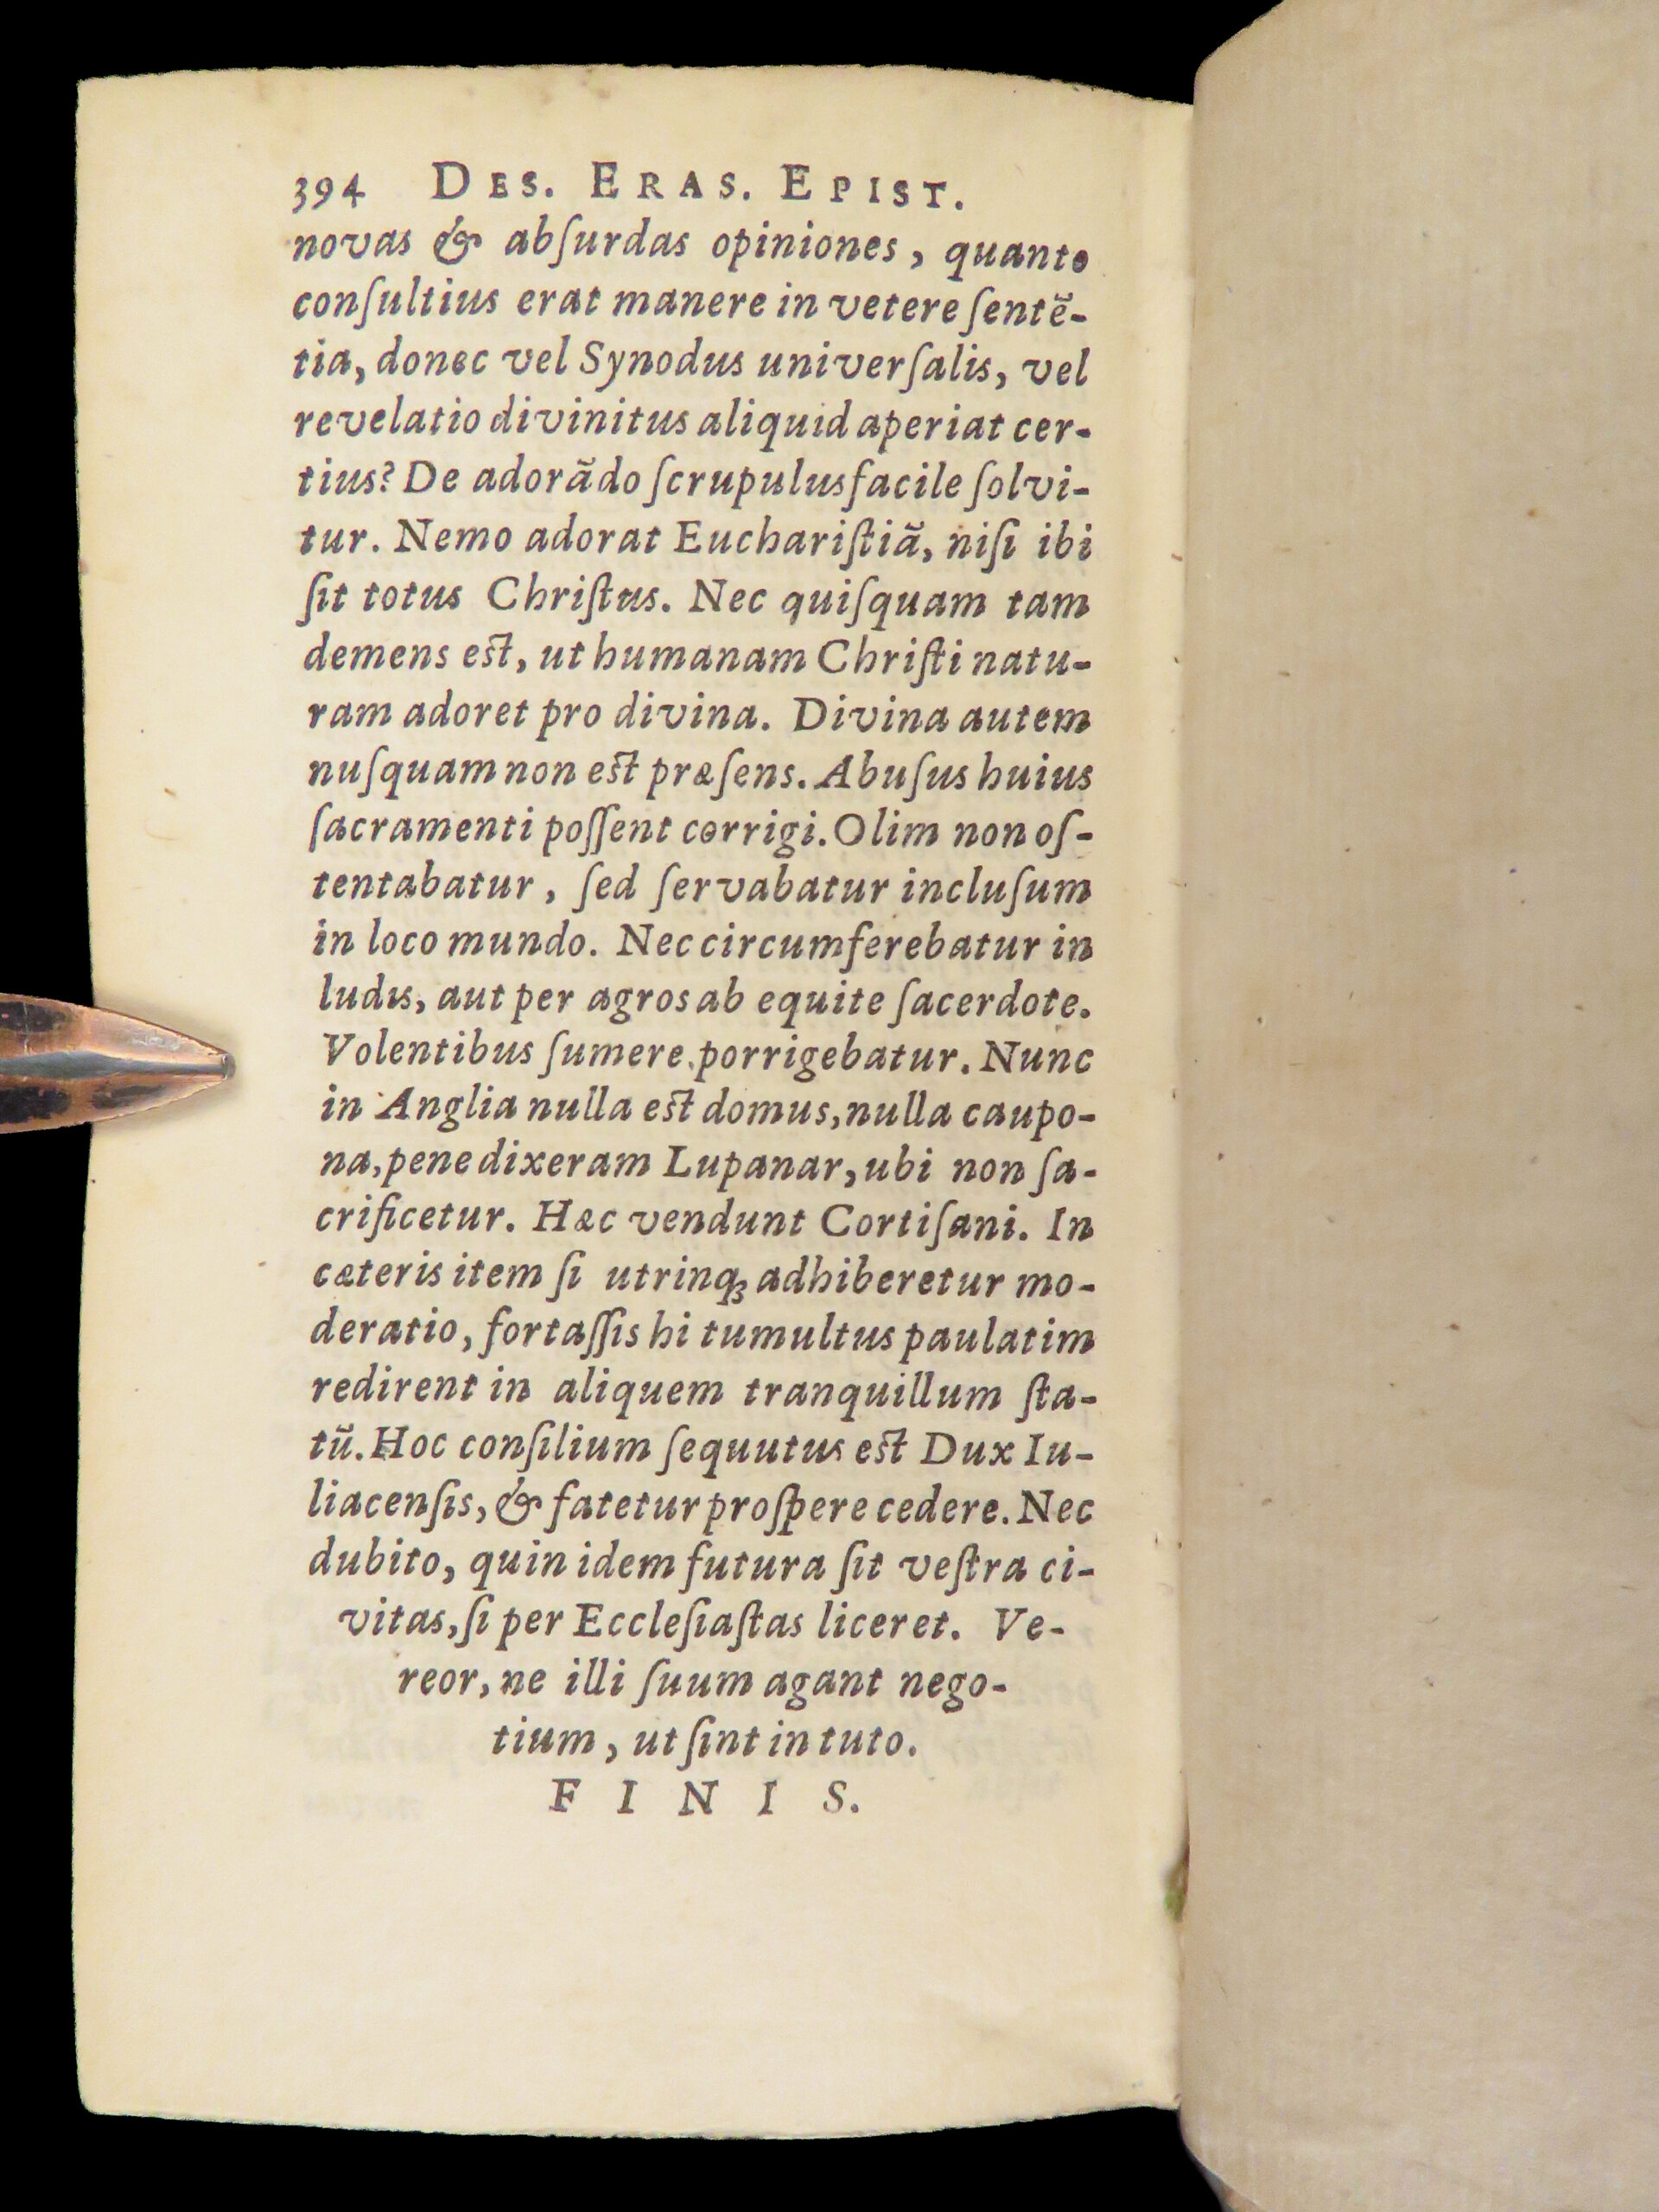 394 DES. ERAS. EPIST.
novas & abſurdas opiniones, quanto
conſultius erat manere in vetere ſentẽ-
tia, donec vel Synodus univerſalis, vel
revelatio divinitus aliquid aperiat cer-
tius? De adorãdo ſcrupulus facile ſolvi-
tur. Nemo adorat Euchariſtiã, niſi ibi
ſit totus Chriſtus. Nec quiſquam tam
demens eſt, ut humanam Chriſti natu-
ram adoret pro divina. Divina autem
nuſquam non eſt præſens. Abuſus huius
ſacramenti poſſent corrigi. Olim non oſ-
tentabatur, ſed ſervabatur incluſum
in loco mundo. Nec circumferebatur in
ludis, aut per agros ab equite ſacerdote.
Volentibus ſumere porrigebatur. Nunc
in Anglia nulla eſt domus, nulla caupo-
na, pene dixeram Lupanar, ubi non ſa-
crificetur. Hæc vendunt Cortiſani. In
cæteris item ſi utrinq́ꝫ adhiberetur mo-
deratio, fortaſſis hi tumultus paulatim
redirent in aliquem tranquillum ſta-
tũ. Hoc conſilium ſequutus eſt Dux Iu-
liacenſis, & fatetur proſpere cedere. Nec
dubito, quin idem futura ſit veſtra ci-
vitas, ſi per Eccleſiaſtas liceret. Ve-
reor, ne illi ſuum agant nego-
tium, ut ſint in tuto.
F I N I S.